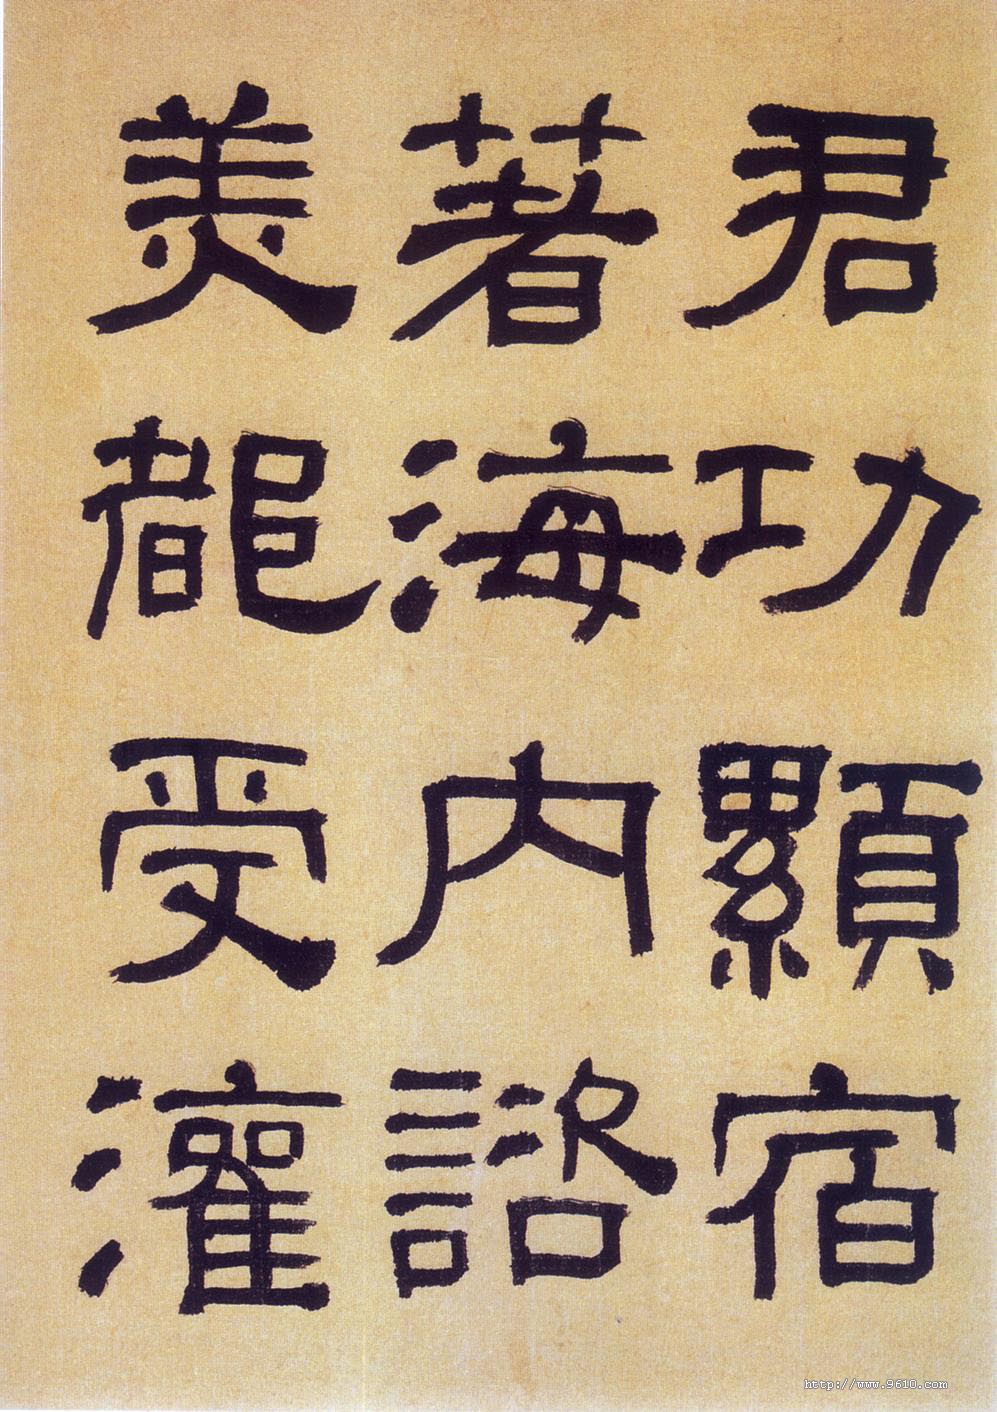 君功顯宿
著海内諮
美都受灌
http://www.9610.com